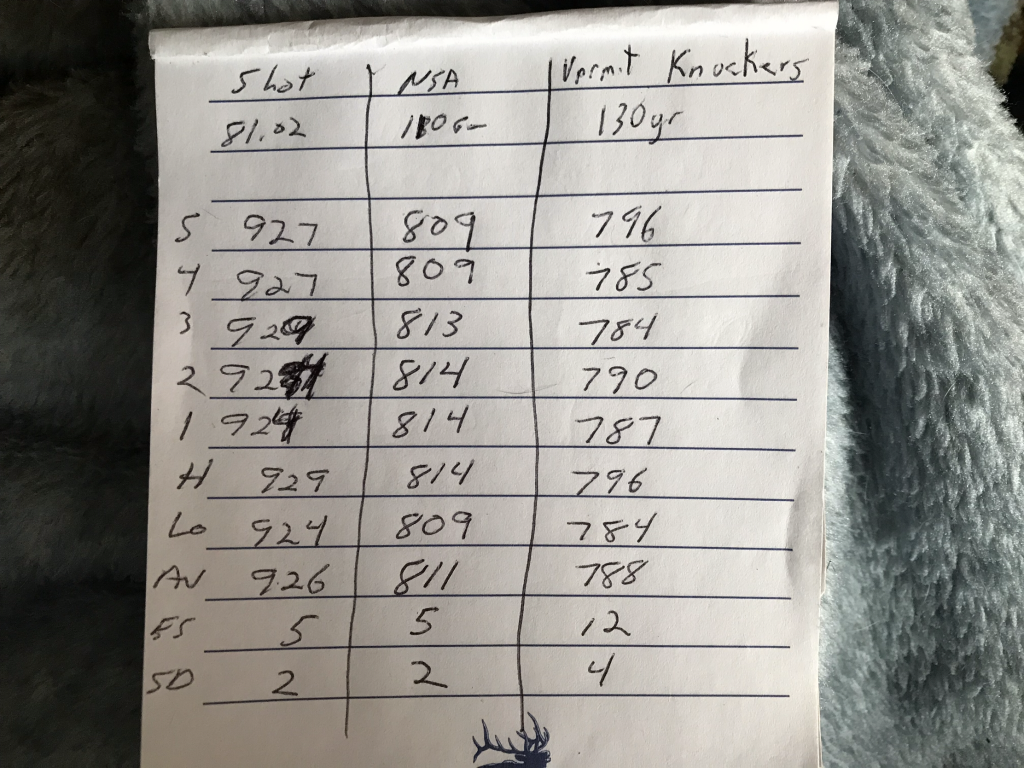 5 hot NSA Varmit Knockers
81.02 110Gr 130gr
5 927 809 796
4 927 809 785
3 929 813 784
2 924 814 790
1 924 814 787
H 929 814 796
Lo 924 809 784
AV 926 811 788
ES 5 5 12
SD 2 2 4